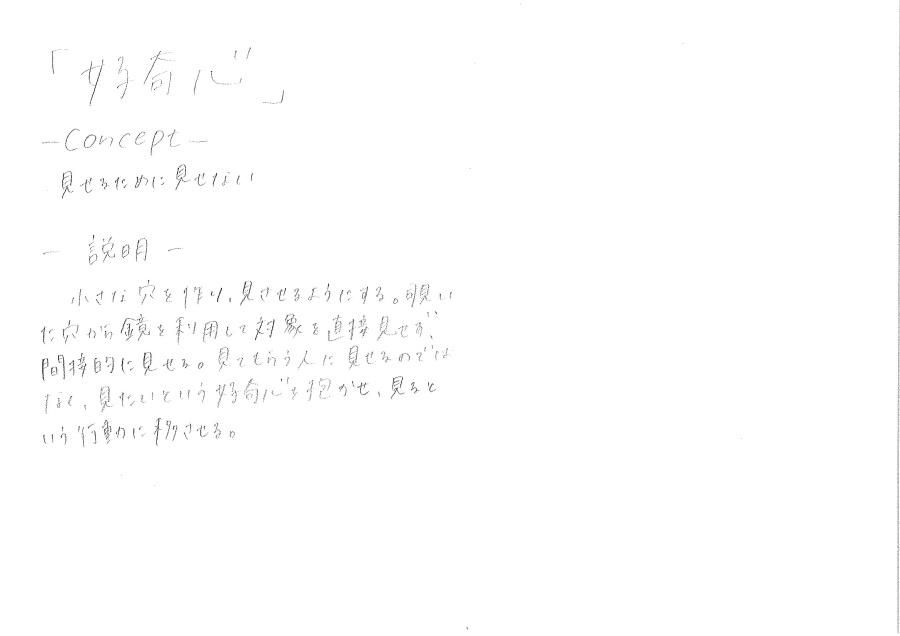 「好奇心」
-Concept-
見せるために見せない
- 説明 -
小さな穴を作り、見させるようにする。覗い
た穴から鏡を利用して対象を直接見せず、
間接的に見せる。見てもらう人に見せるのでは
なく、見たいという好奇心を抱かせ、見ると
いう行動に移させる。